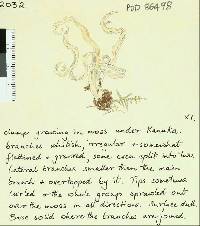 2032
PDD 86498
x1.
clumps growing in moss under Kanuka.
branches whitish, irregular + somewhat
flattened + grooved, some even split into two.
Lateral branches smaller than the main
branch + overlapped by it. Tips sometimes
curled + the whole groups sprawled out
over the moss in all directions. Surface dull.
Base solid where the branches are joined.